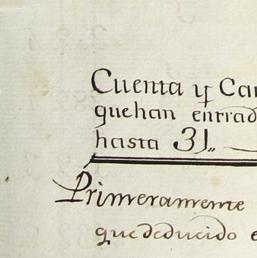 Cuenta y Car
que han entrad
hasta 31,,
Primeramente
que deducido e